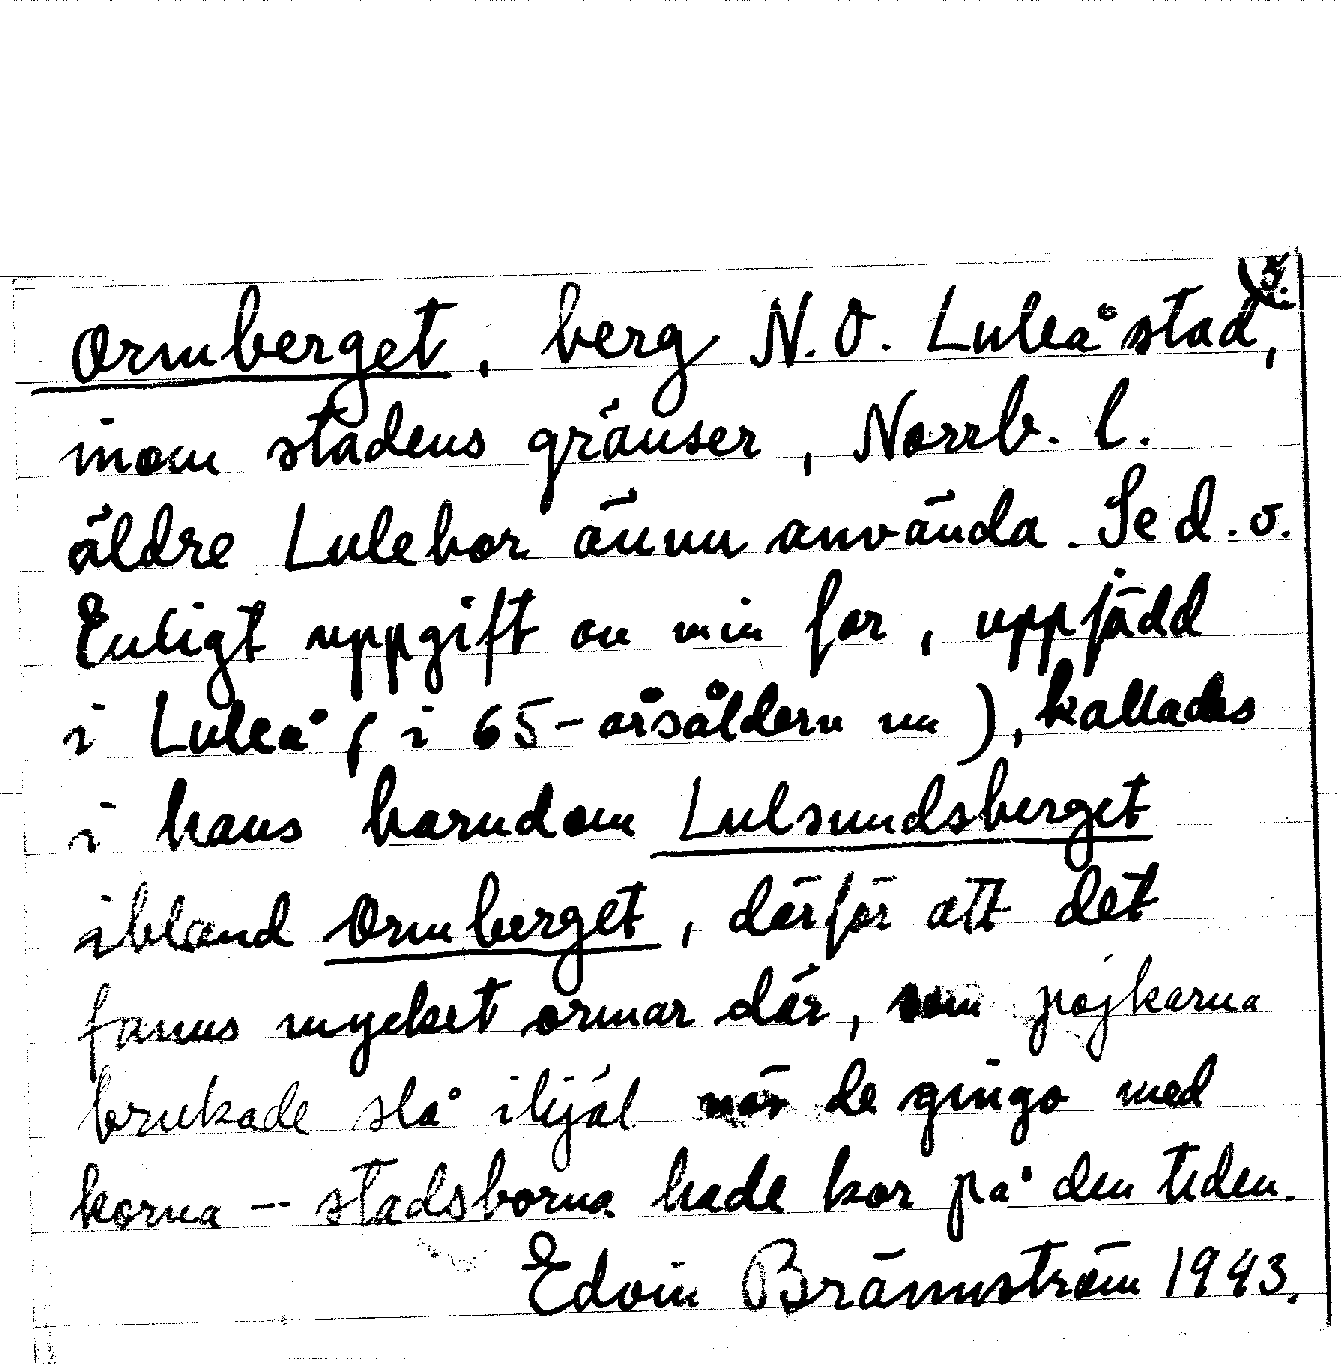 Ormberget, berg N.O. Luleå stad,
inom stadens gränser, Norrb. l.
äldre Lulebor ännu använda. Se d. o.
Enligt uppgift av min far, uppfödd
i Luleå (i 65-årsåldern nu), kallades
i hans barndom Lulsundsberget
ibland Ormberget, därför att det
fanns mycket ormar där, som pojkarna
brukade slå ihjäl när de gingo med
korna -- stadsborna hade kor på den tiden.
Edvin Brännström 1943.